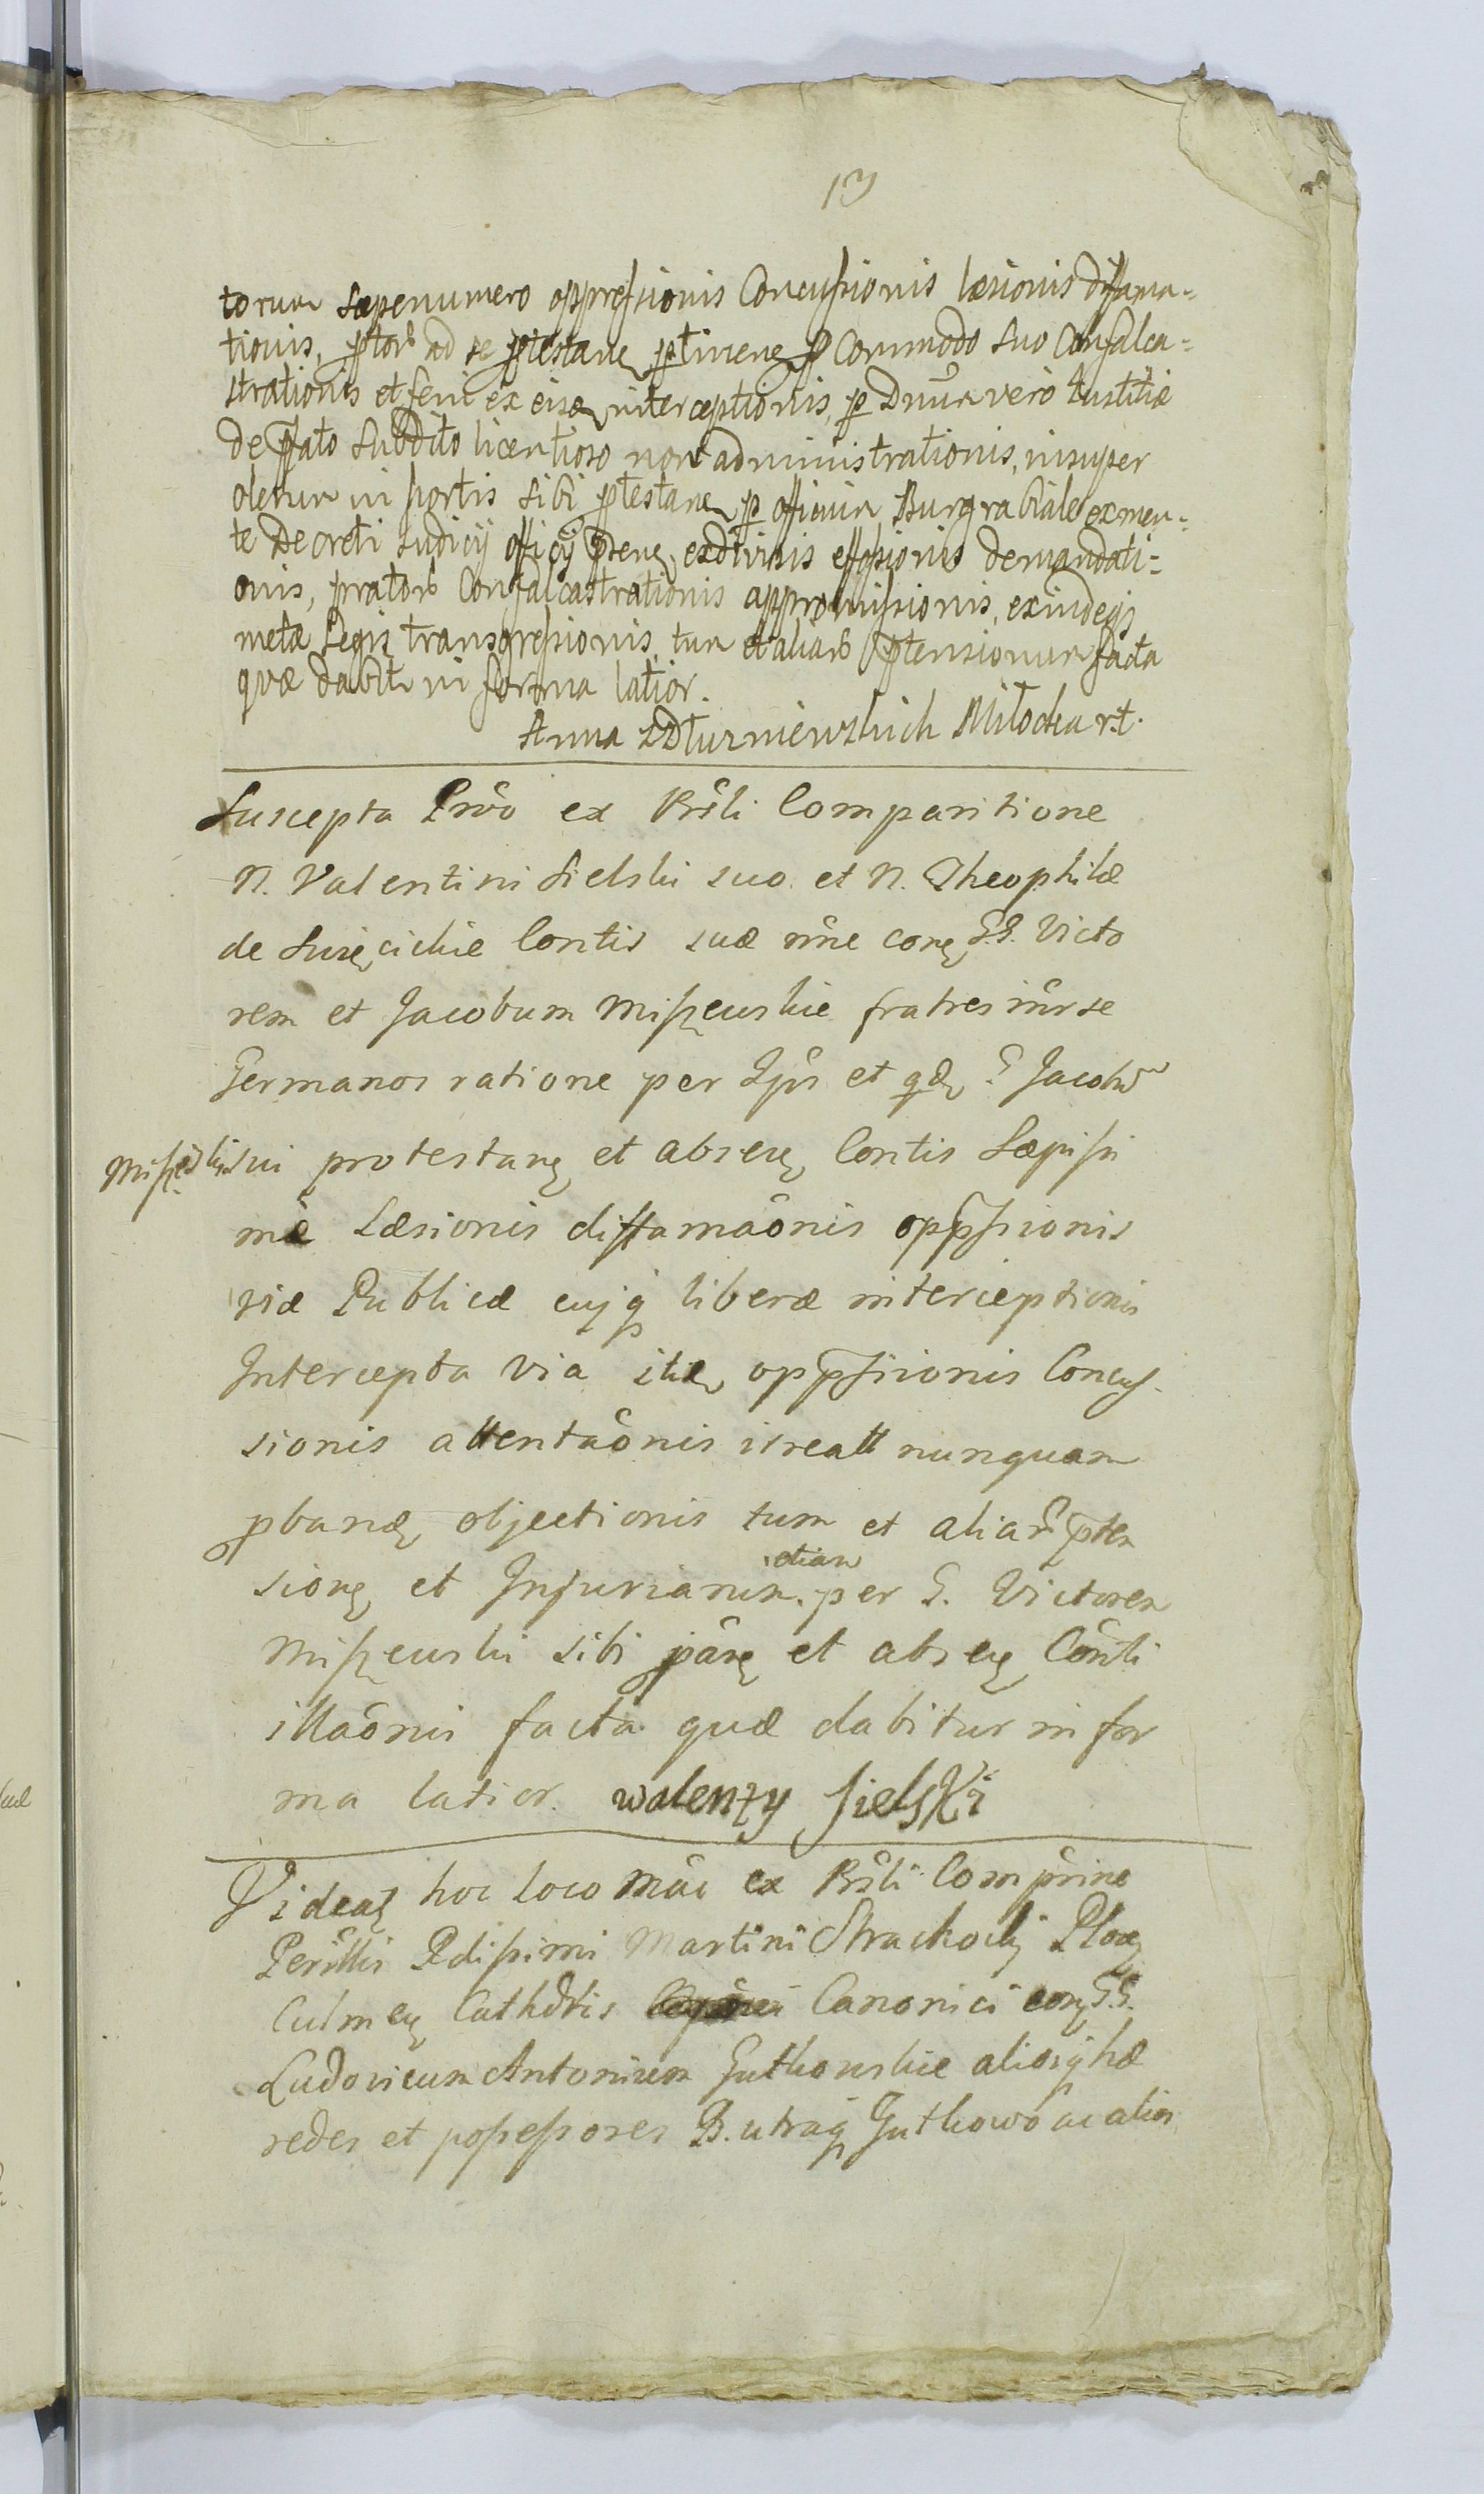 13
torum sæpenumero oppressionis Concussionis læsionis diffama=
tionis, ptorũ ad se ptestanē ptinenē p Commodo suo Confalca=
strationis et feni ex eisdē interceptionis, p Dnum vero Iustitiæ
de pfato Subdito licentioso non administrationis, insuper
olerum in hortis sibi ptestanē p officium Burgrabiale ex men=
te Decreti Iudicij officij psenē ex divisis effossionis demandati=
onis, pratorũ Confalcastrationis appromissionis, exindeqȝ
metæ Legis transgressionis, tum et aliarũ ptensionum facta
quæ dabitr in forma latiori.
Anna z Dłurniewskich Miłocka r.t.
Suscepta Prõo ex Prsli Comparitione
N. Valentini Sielski suo et N. Theophilæ
de Święcickie Contis suæ nñe conē G.G. Victo
rem et Jacobum Miszewskie fratres inr se
Germanos ratione per Ipũ et qđē G. Jacobũ
Miszewski sui protestanē et absenē Contis Sæpissi
mæ Læsionis diffamaõnis oppssionis
viæ Publicæ cujqȝ liberæ interceptionis
Intercepta via itidē oppssionis Concus-
sionis attentaõnis itreatt nunquam
pbandē objectionis tum et aliarũ pten
sionē et Injuriarum. etiam per G. Victorem
Miszewski sibi pãrē et absenē Cõnti
illaõnis facta quæ dabitur in for
ma latior. walenty Sielski
Videat hoc loco Mãc ex Prsli Compãrine
Perillis Rdissimi Martini Strachocki Plocē
Culmenē Cathđlis Canonici conē G.G.
Ludovicum Antonium Gutkowskie aliosqȝ hæ
redes et possessores B. utraqȝ Gutkowo ac alios